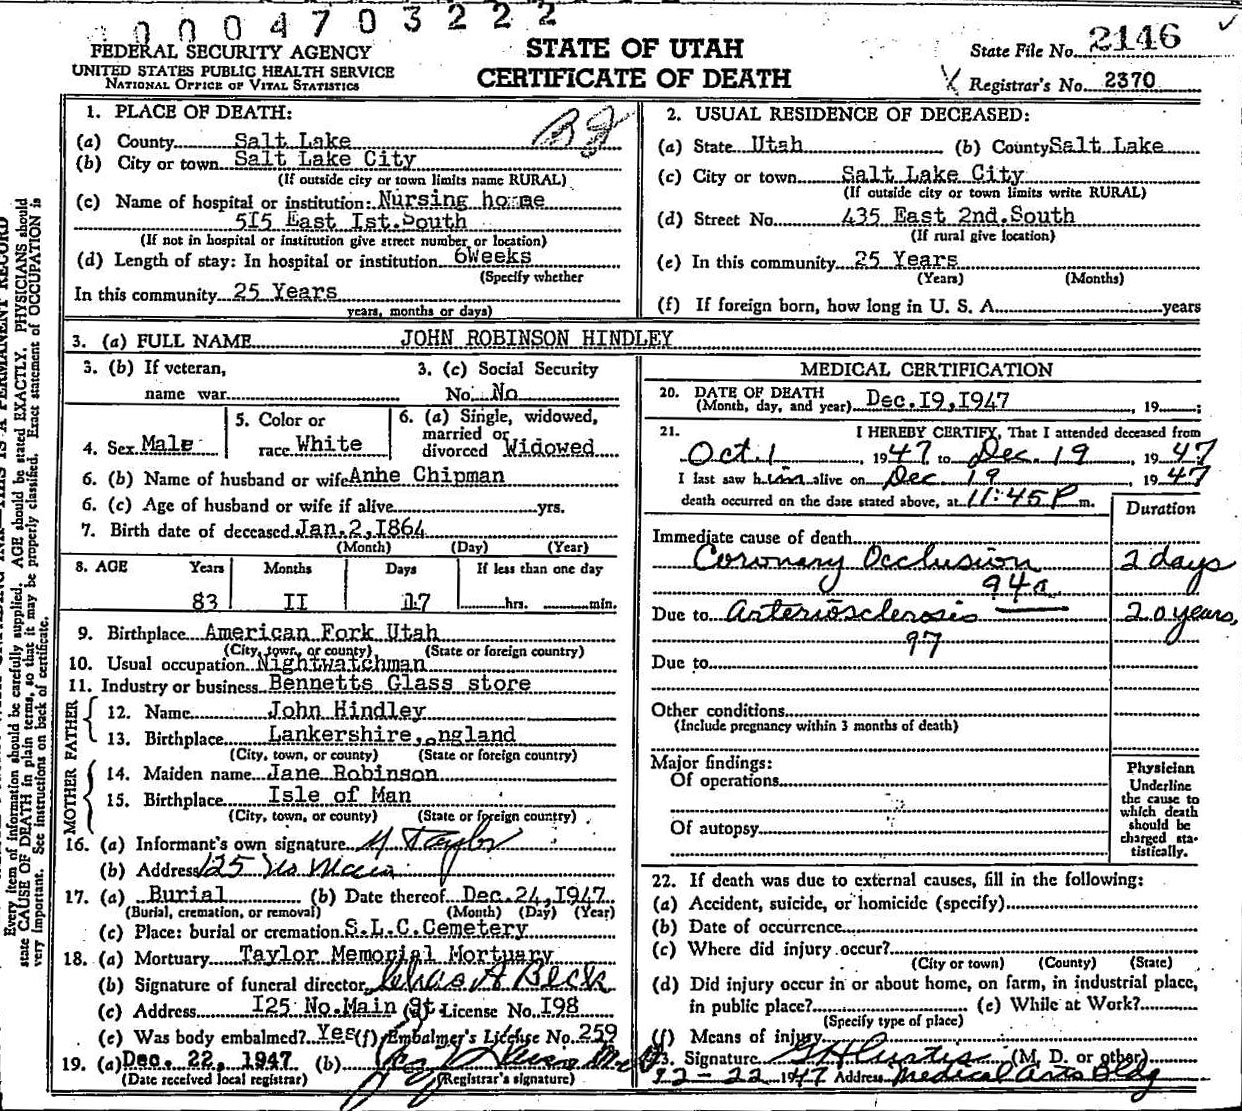 0004703222
FEDERAL SECURITY AGENCY
UNITED STATES PUBLIC HEALTH SERVICE
NATIONAL OFFICE OF VITAL STATISTICS
STATE OF UTAH
CERTIFICATE OF DEATH
State File No. 2146
Registrar's No. 2370
1. PLACE OF DEATH:
(a) County Salt Lake
(b) City or town Salt Lake City
(If outside city or town limits name RURAL)
(c) Name of hospital or institution: Nursing home
5I5 East Ist.South
(If not in hospital or institution give street number or location)
(d) Length of stay: In hospital or institution 6Weeks
(Specify whether
In this community 25 Years
years, months or days)
2. USUAL RESIDENCE OF DECEASED:
(a) State Utah (b) County Salt Lake
(c) City or town Salt Lake City
(If outside city or town limits write RURAL)
(d) Street No. 435 East 2nd.South
(If rural give location)
(e) In this community 25 Years
(Years) (Months)
(f) If foreign born, how long in U. S. A. years
3. (a) FULL NAME JOHN ROBINSON HINDLEY
3. (b) If veteran,
name war
3. (c) Social Security
No. No
4. Sex Male
5. Color or
race White
6. (a) Single, widowed,
married or
divorced Widowed
6. (b) Name of husband or wife Anhe Chipman
6. (c) Age of husband or wife if alive yrs.
7. Birth date of deceased Jan.2,I864
(Month) (Day) (Year)
8. AGE Years Months Days If less than one day
83 II I7 hrs. min.
9. Birthplace American Fork Utah
(City, town, or county) (State or foreign country)
10. Usual occupation Nightwatchman
11. Industry or business Bennetts Glass store
FATHER
12. Name John Hindley
13. Birthplace Lankershire, ngland
(City, town, or county) (State or foreign country)
MOTHER
14. Maiden name Jane Robinson
15. Birthplace Isle of Man
(City, town, or county) (State or foreign country)
16. (a) Informant's own signature M Taylor
(b) Address 125 No Main
17. (a) Burial (b) Date thereof Dec.24,I947
(Burial, cremation, or removal) (Month) (Day) (Year)
(c) Place: burial or cremation S.L.C.Cemetery
18. (a) Mortuary Taylor Memorial Mortuary
(b) Signature of funeral director Chas A Beck
(c) Address I25 No.Main St (d) License No. I98
(e) Was body embalmed? Yes (f) Embalmer's License No. 259
19. (a) Dec. 22, 1947 (b)
(Date received local registrar) (Registrar's signature)
MEDICAL CERTIFICATION
20. DATE OF DEATH
(Month, day, and year) Dec.I9,I947 , 19 ;
21. I HEREBY CERTIFY, That I attended deceased from
Oct. 1 , 1947 to Dec. 19 , 1947
I last saw him alive on Dec 19 , 1947
death occurred on the date stated above, at 11:45 P m.
Duration
Immediate cause of death
Coronary Occlusion 2 days
94a
Due to Arteriosclerosis 20 years,
97
Due to
Other conditions
(Include pregnancy within 3 months of death)
Major findings:
Of operations
Of autopsy
Physician
Underline
the cause to
which death
should be
charged sta-
tistically.
22. If death was due to external causes, fill in the following:
(a) Accident, suicide, or homicide (specify)
(b) Date of occurrence
(c) Where did injury occur?
(City or town) (County) (State)
(d) Did injury occur in or about home, on farm, in industrial place,
in public place? (e) While at Work?
(Specify type of place)
(f) Means of injury
23. Signature G H Curtis (M. D. or other)
12-22 1947 Address Medical Arts Bldg
Every item of information should be carefully supplied. AGE should be stated EXACTLY. PHYSICIANS should
state CAUSE OF DEATH in plain terms, so that it may be properly classified. Exact statement of OCCUPATION is
very important. See instructions on back of certificate.